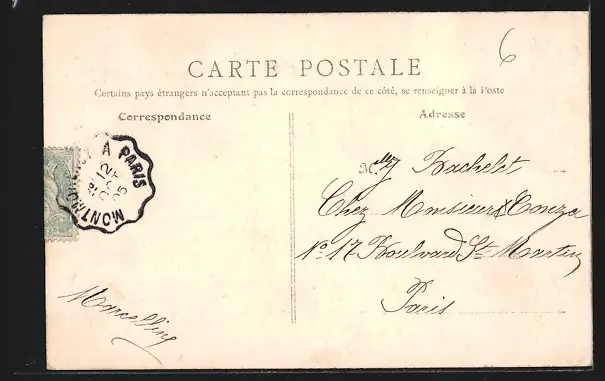 6
CARTE POSTALE
Certains pays étrangers n'acceptant pas la correspondance de ce côté, se renseigner à la Poste
Correspondance
Adresse
A PARIS
12
05
Mlle J Bachelet
Chez Monsieur
No 17 Boulvard St Martin
Paris
Marcelline